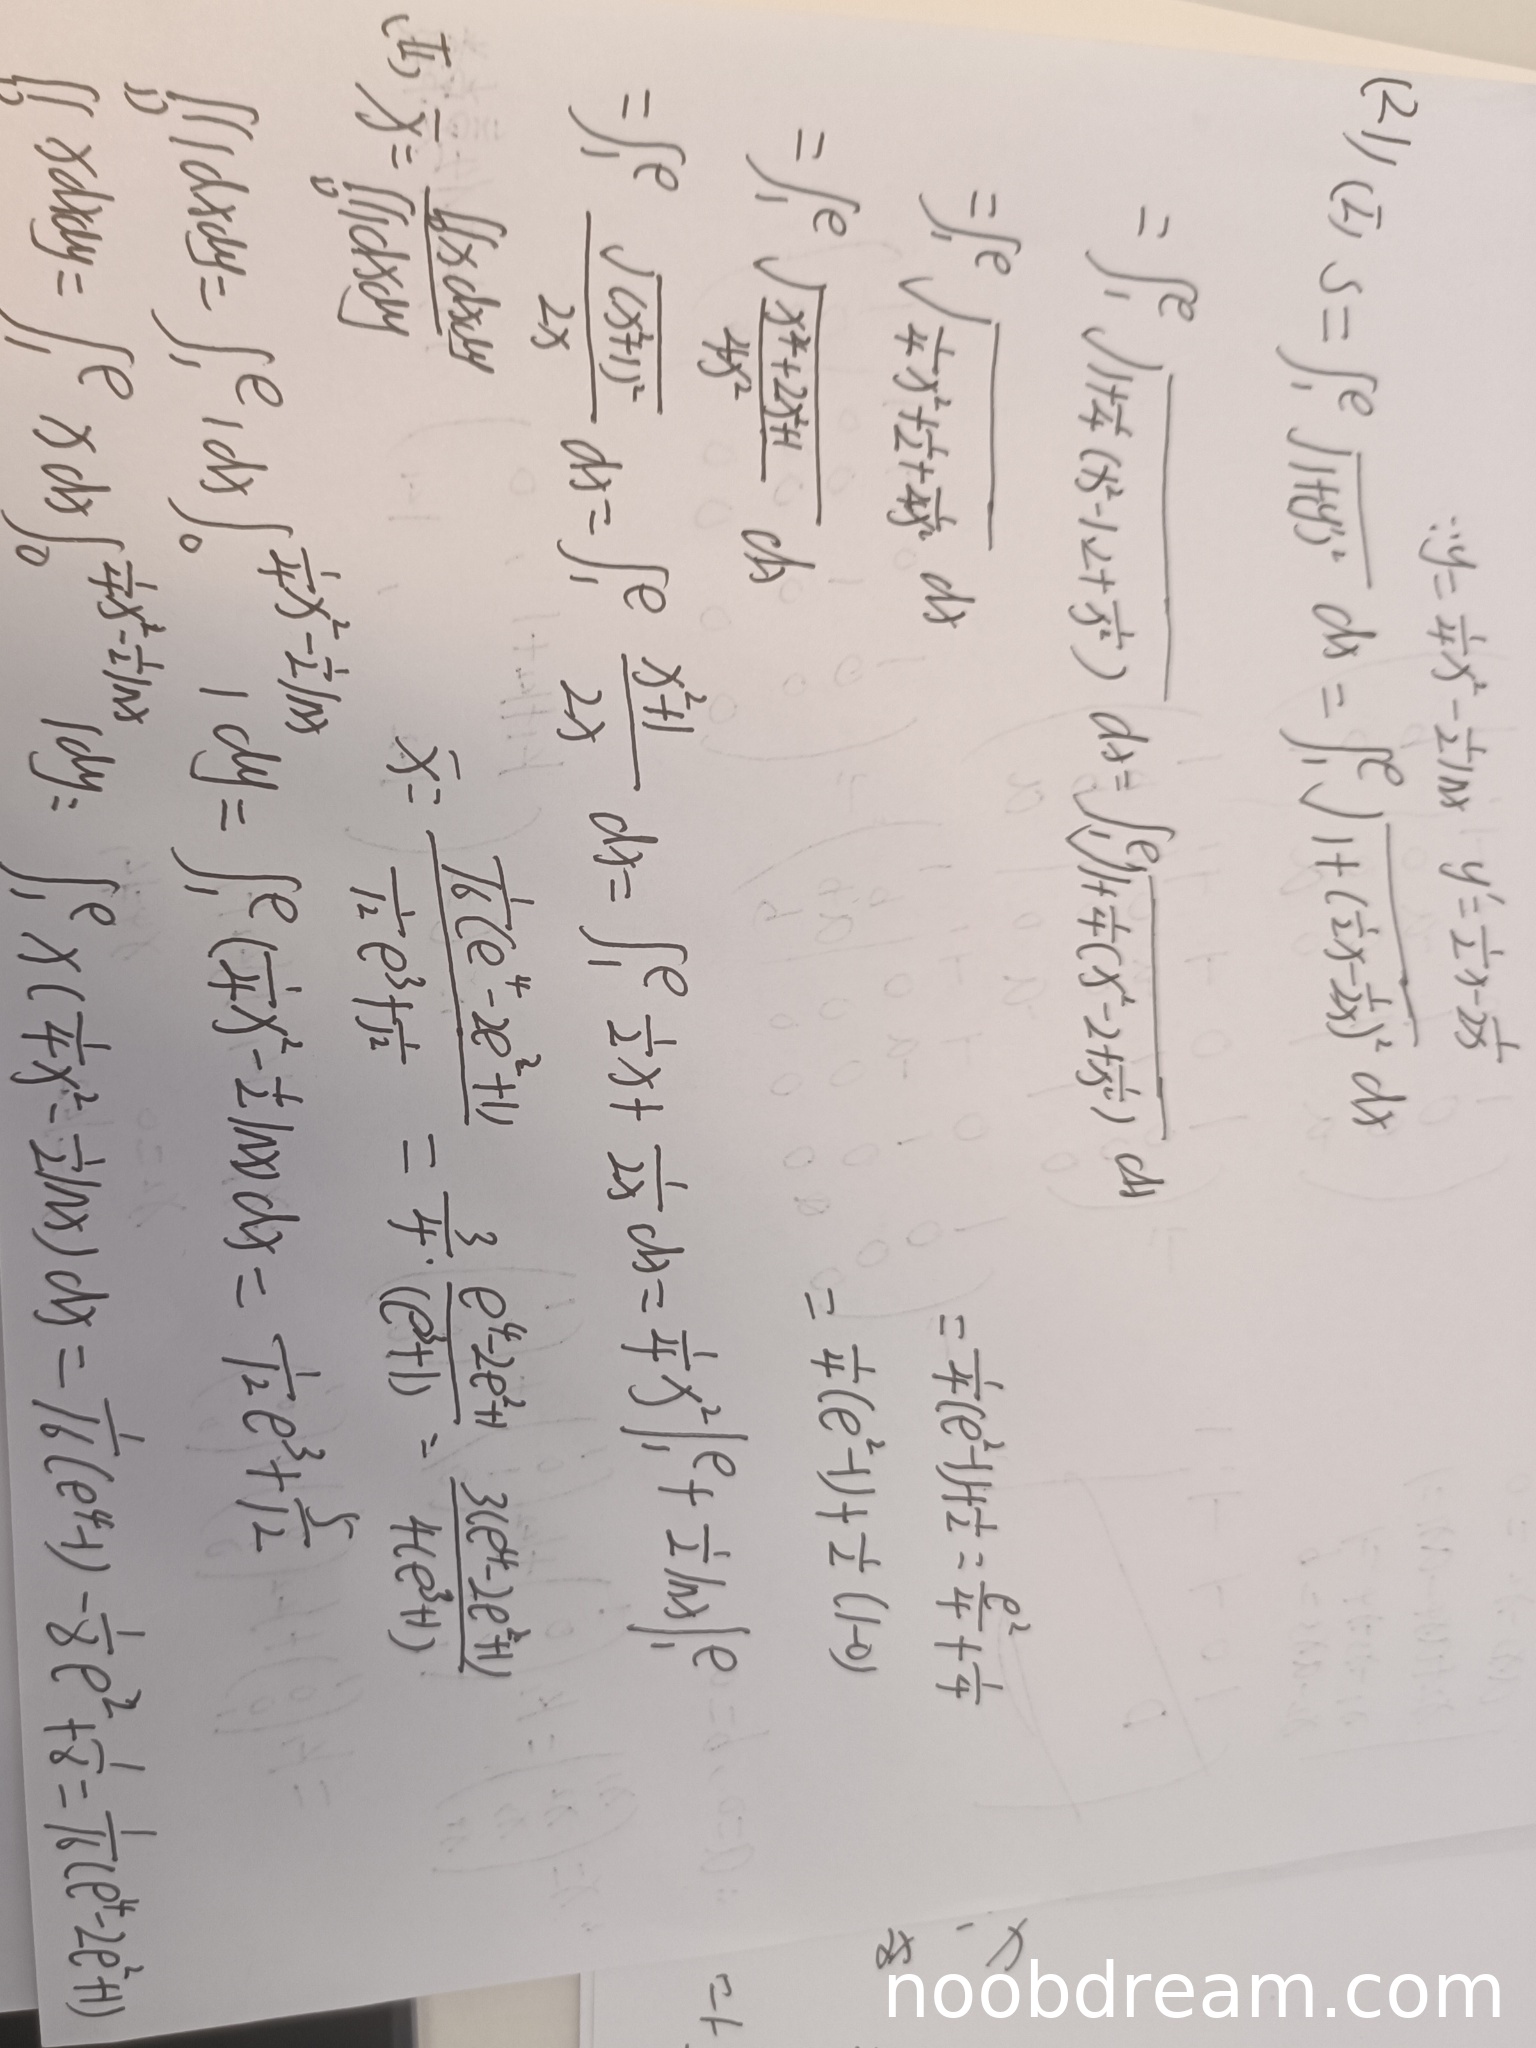 (21) (I) ∵ y = 1/4 x² - 1/2 lnx  y' = 1/2 x - 1/2x
S = ∫₁ᵉ √(1+(y')²) dx = ∫₁ᵉ √(1+(1/2 x - 1/2x)²) dx
= ∫₁ᵉ √(1+1/4(x²-1·2+1/x²)) dx = ∫₁ᵉ √(1+1/4(x²-2+1/x²)) dx
= ∫₁ᵉ √(1/4 x²+1/2+1/4x²) dx
= ∫₁ᵉ √((x⁴+2x²+1)/4x²) dx
= ∫₁ᵉ √(x²+1)²/2x dx = ∫₁ᵉ (x²+1)/2x dx = ∫₁ᵉ 1/2 x + 1/2x dx = 1/4 x² |₁ᵉ + 1/2 lnx |₁ᵉ
= 1/4(e²-1) + 1/2(1-0)
= 1/4(e²-1)+1/2 = e²/4 + 1/4
(II) x̄ = ∬D xdxdy / ∬D 1dxdy
x̄ = 1/16(e⁴-2e²+1) / (1/12 e³+1/12) = 3/4 · (e⁴-2e²+1)/(e³+1) = 3(e⁴-2e²+1)/4(e³+1)
∬D 1dxdy = ∫₁ᵉ 1dx ∫₀^(1/4 x² - 1/2 lnx) 1 dy = ∫₁ᵉ (1/4 x² - 1/2 lnx) dx = 1/12 e³ + 5/12
∬D xdxdy = ∫₁ᵉ x dx ∫₀^(1/4 x² - 1/2 lnx) 1dy = ∫₁ᵉ x(1/4 x² - 1/2 lnx) dx = 1/16(e⁴-1) - 1/8 e² + 1/8 = 1/16(e⁴-2e²+1)
noobdream.com